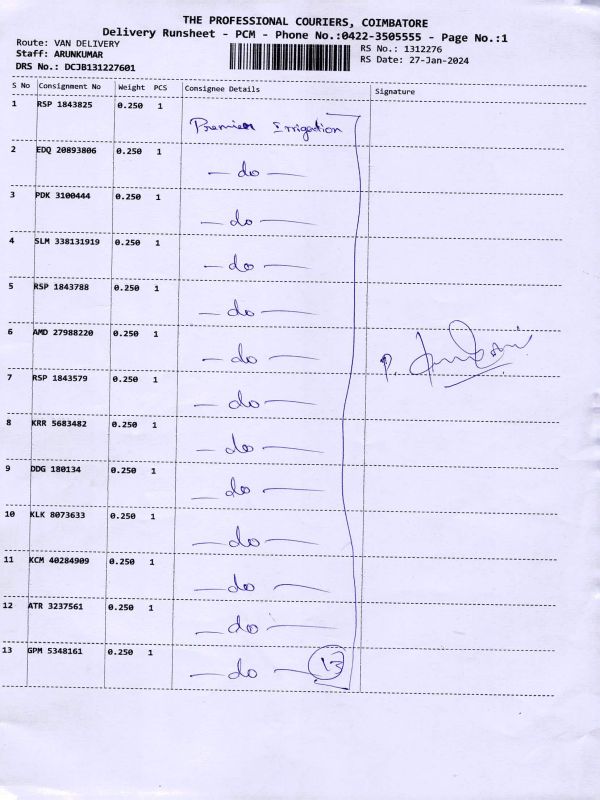 THE PROFESSIONAL COURIERS, COIMBATORE
Delivery Runsheet - PCM - Phone No.:0422-3505555 - Page No.:1
Route: VAN DELIVERY
Staff: ARUNKUMAR
DRS No.: DCJB131227601
RS No.: 1312276
RS Date: 27-Jan-2024
S No Consignment No Weight PCS Consignee Details Signature
1 RSP 1843825 0.250 1 Premier Irrigation
2 EDQ 20893806 0.250 1 — do —
3 PDK 3100444 0.250 1 — do —
4 SLM 338131919 0.250 1 — do —
5 RSP 1843788 0.250 1 — do —
6 AMD 27988220 0.250 1 — do — P.
7 RSP 1843579 0.250 1 — do —
8 KRR 5683482 0.250 1 — do —
9 DDG 180134 0.250 1 — do —
10 KLK 8073633 0.250 1 — do —
11 KCM 40284909 0.250 1 — do —
12 ATR 3237561 0.250 1 — do —
13 GPM 5348161 0.250 1 — do — 13